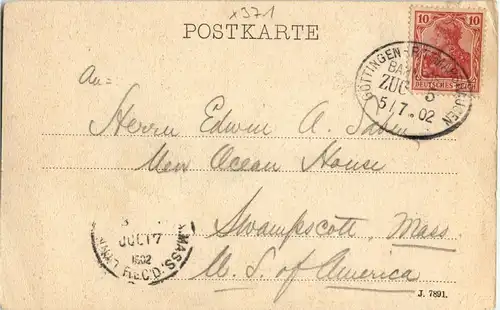 x371
POSTKARTE
10 10
DEUTSCHES REICH
GÖTTINGEN-
BAHNPOST
ZUG 5
5/7.02
An=
Herrn Edwin A.
New Ocean House
Swampscott, Mass.
U. S. of America
LYNN, MASS.
JUL 17
1902
REC'D.
J. 7891.